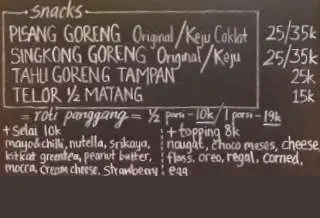 snacks
PISANG GORENG Original/Keju Coklat 25/35k
SINGKONG GORENG Original/Keju 25/35k
TAHU GORENG TAMPAN 25k
TELOR 1/2 MATANG 15k
= roti panggang = 1/2 porsi - 10k / 1 porsi - 19k
+ Selai 10k
mayo&chilli, nutella, srikaya,
kitkat greentea, peanut butter,
mocca, cream cheese, strawberry
+ topping 8k
nougat, choco meses, cheese
floss, oreo, regal, corned,
egg